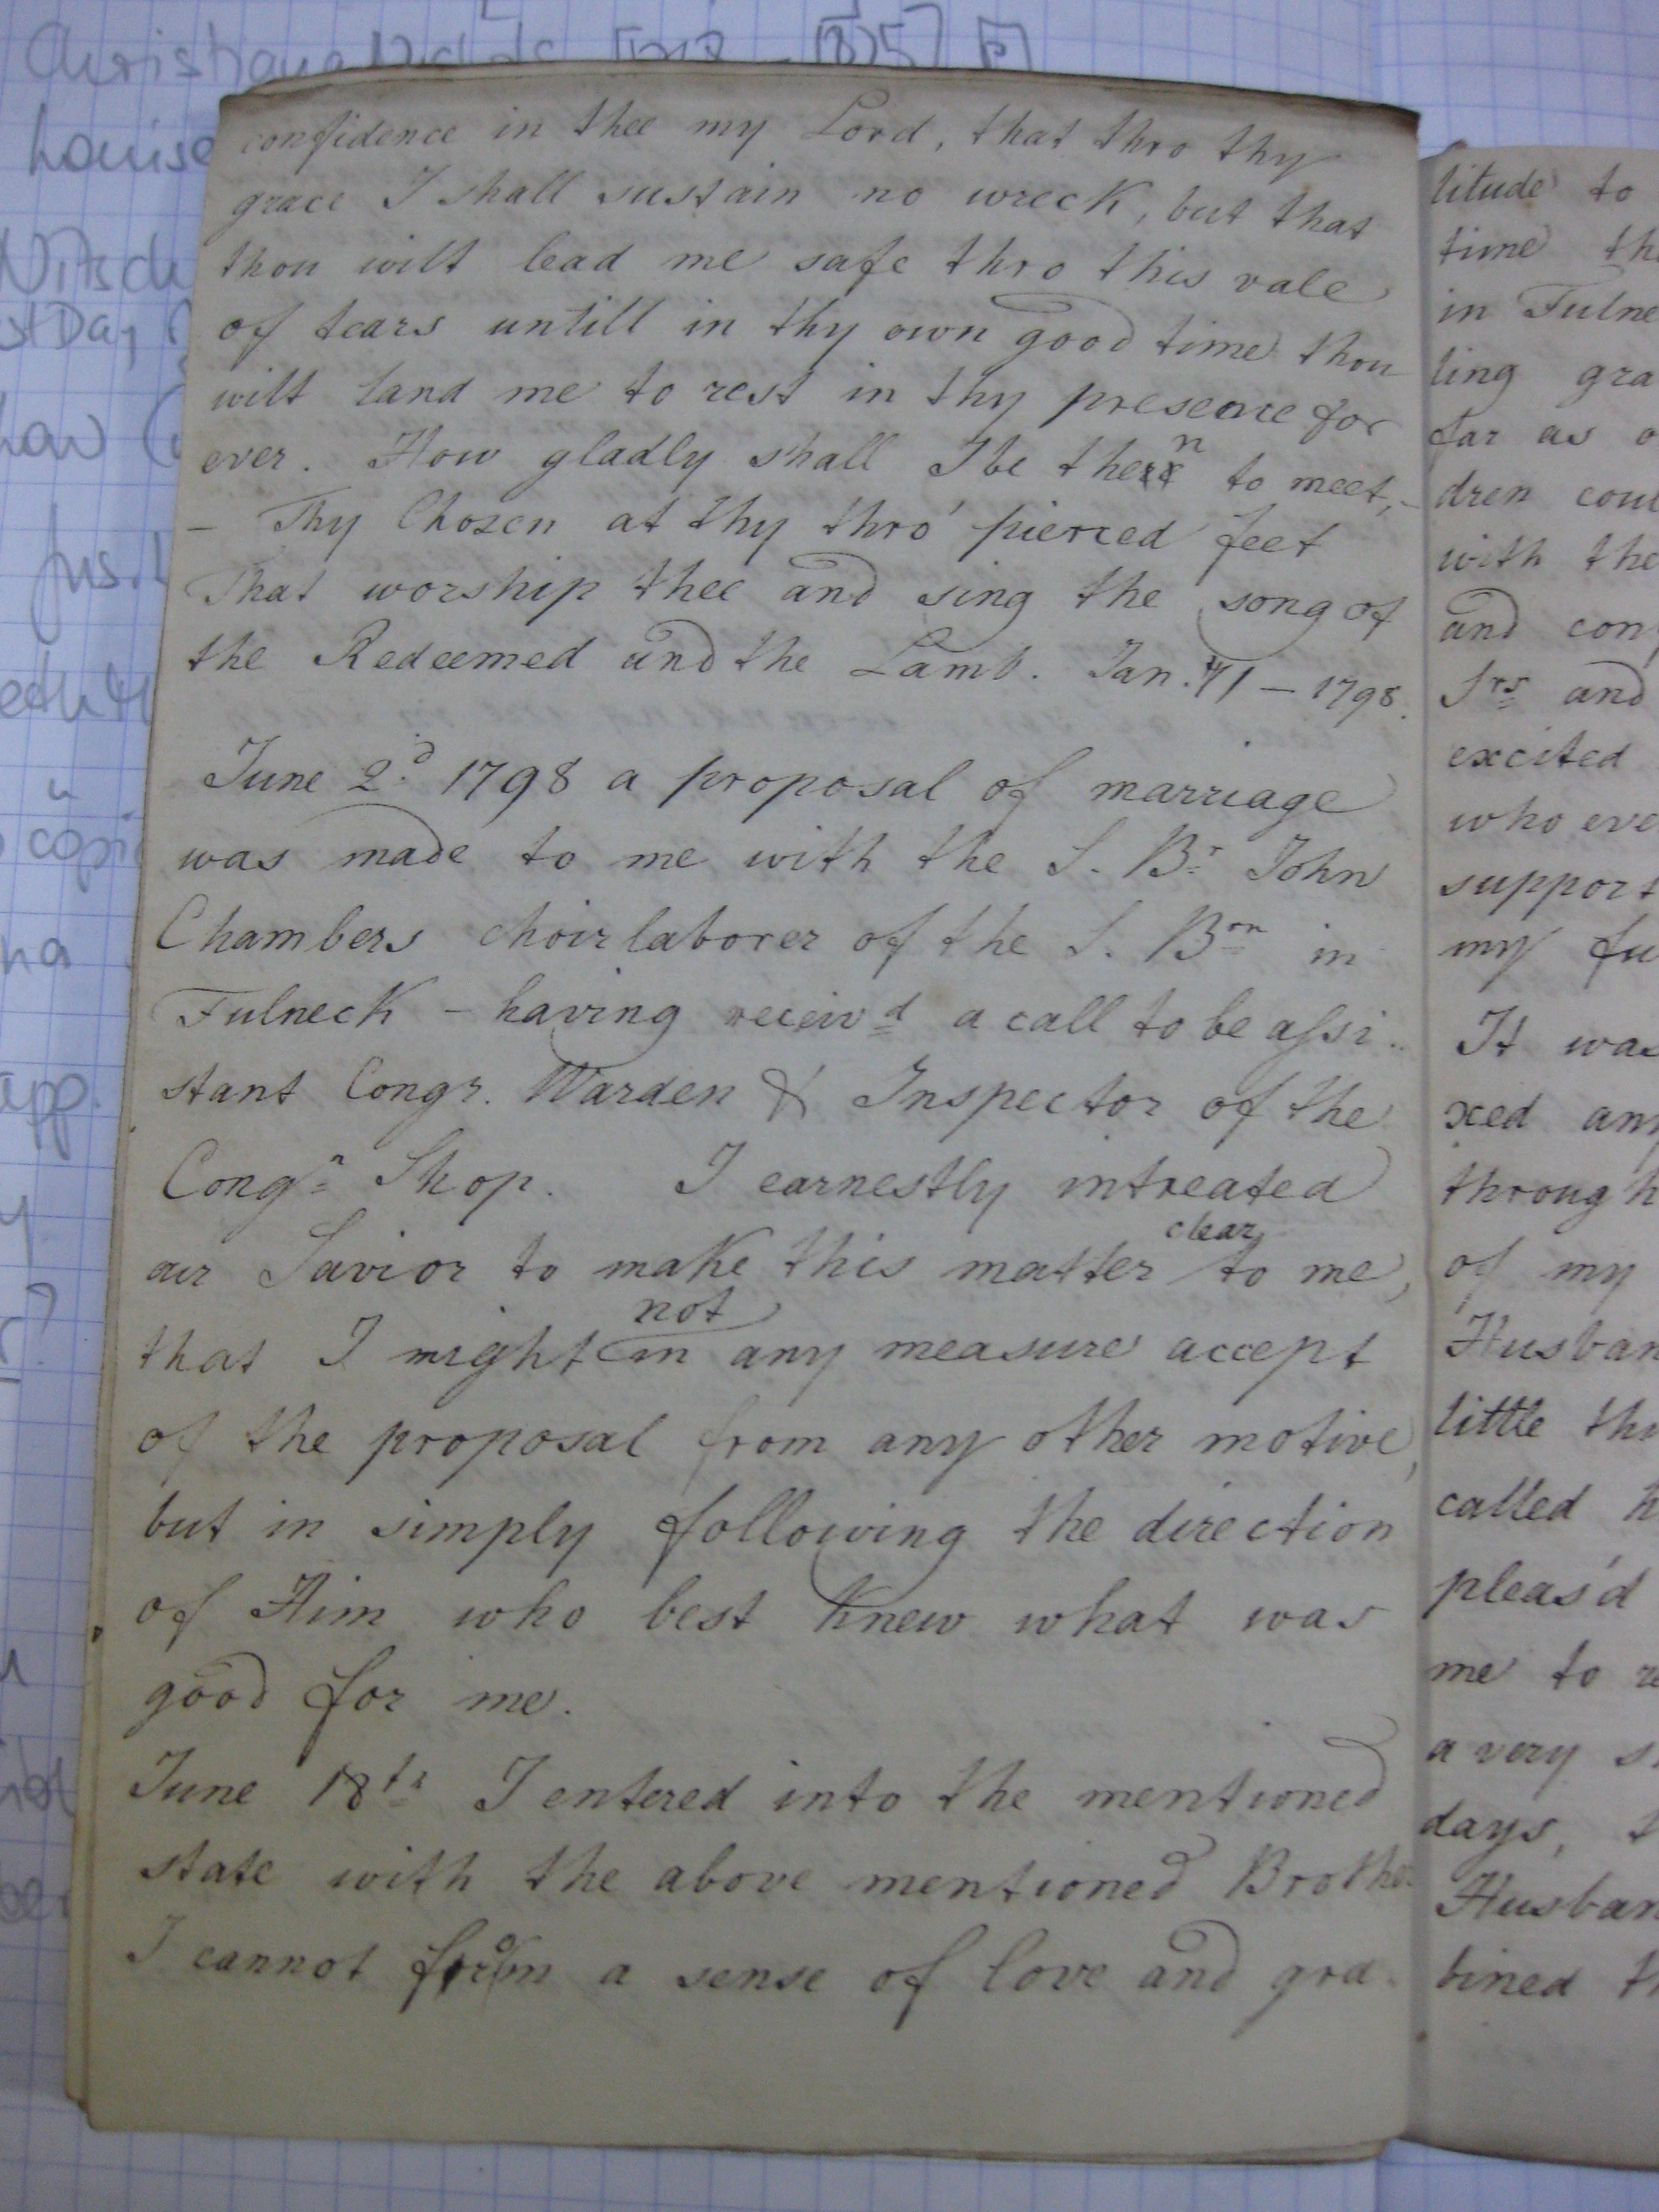 confidence in thee my Lord, that thro thy
grace I shall sustain no wreck, but that
thou wilt lead me safe thro this vale
of tears untill in thy own good time thou
wilt land me to rest in thy presence for
ever. How gladly shall I be then to meet,
– Thy Chosen at thy thro' pierced feet
That worship thee and sing the song of
the Redeemed and the Lamb. Jan. 1 – 1798.
June 2d 1798 a proposal of marriage
was made to me with the S. Br John
Chambers choir laborer of the S. Brn in
Fulneck – having receivd a call to be assi..
stant Congr. Warden & Inspector of the
Congn Shop. I earnestly intreated
our Savior to make this matter clear to me,
that I might not in any measure accept
of the proposal from any other motive,
but in simply following the direction
of Him who best knew what was
good for me.
June 18th I entered into the mentioned
state with the above mentioned Brothe
I cannot from a sense of love and gra
titude to
time th
in Fulne
ling gra
far as o
dren cou
with the
and con
Srs and
excited
who eve
support
my fu
It was
xed any
through
of my
Husban
little thi
called h
pleas'd
me to r
a very s
days, t
Husban
bined th
Christiana
Louise
Nitsch
st Day
app.